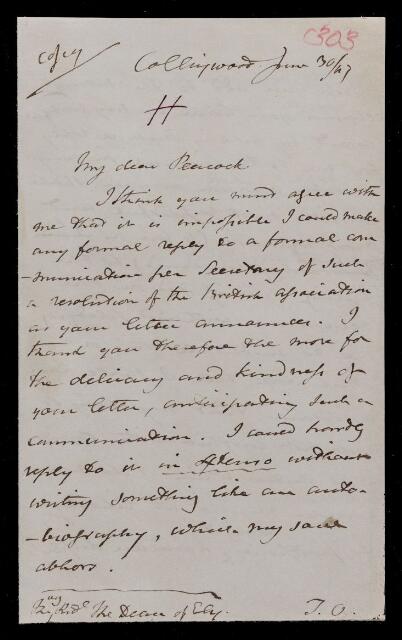 C303
Copy
Collingwood June 30/47
H
My dear Peacock
I think you must agree with
me that it is impossible I could make
any formal reply to a formal com
-munication per Secretary of such
a resolution of the British Association
as your letter announces. I
thank you therefore the more for
the delicacy and kindness of
your letter, anticipating such a
communication. I could hardly
reply to it in extenso without
writing something like an auto-
-biography, which my soul
abhors.
The Dean of Ely.
T.O.